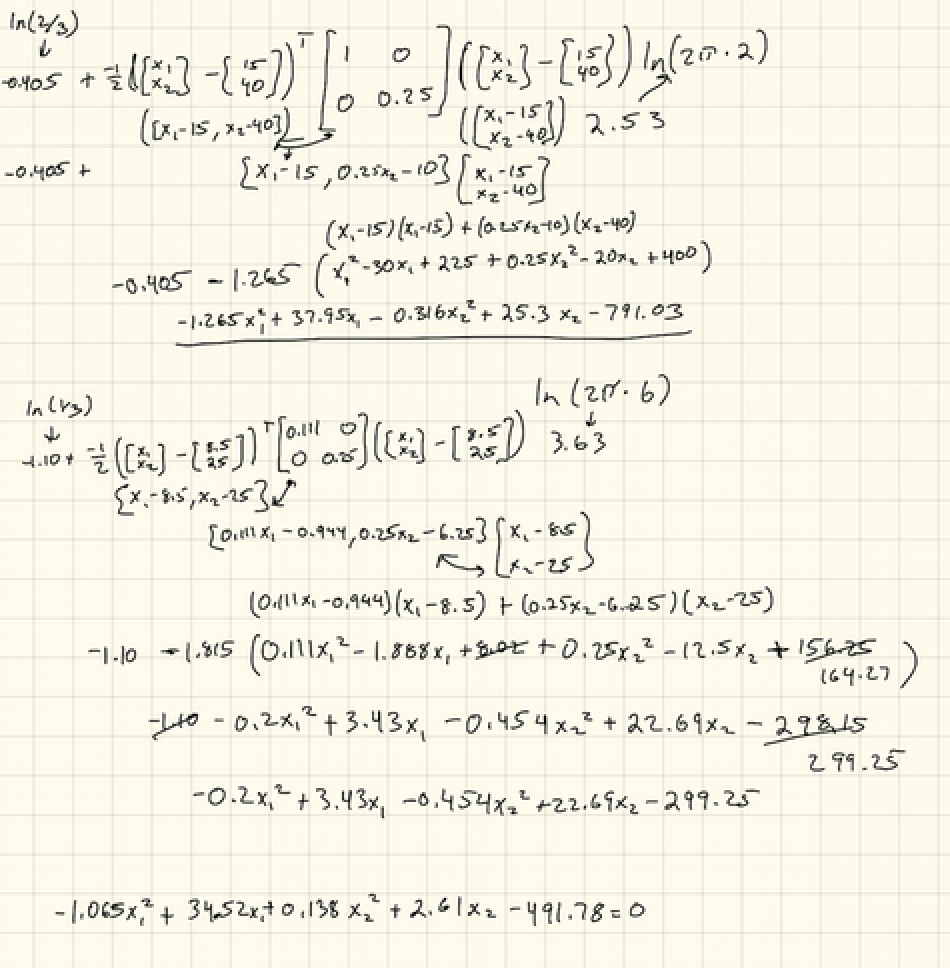 ln(2/3)
↓
-0.405 + -1/2 ([x₁ x₂] - [15 40])ᵀ [1 0 0 0.25] ([x₁ x₂] - [15 40]) ln(2π·2)
([x₁-15, x₂-40]) ([x₁-15 x₂-40]) 2.53
-0.405 + [x₁-15, 0.25x₂-10] [x₁-15 x₂-40]
(x₁-15)(x₁-15) + (0.25x₂-10)(x₂-40)
-0.405 - 1.265 (x₁² - 30x₁ + 225 + 0.25x₂² - 20x₂ + 400)
-1.265x₁² + 37.95x₁ - 0.316x₂² + 25.3x₂ - 791.03
ln(2π·6)
ln(1/3)
↓ ↓
-1.10 + -1/2 ([x₁ x₂] - [8.5 25])ᵀ [0.111 0 0 0.25] ([x₁ x₂] - [8.5 25]) 3.63
[x₁-8.5, x₂-25]
[0.111x₁ - 0.944, 0.25x₂ - 6.25] [x₁-8.5 x₂-25]
(0.111x₁-0.944)(x₁-8.5) + (0.25x₂-6.25)(x₂-25)
-1.10 -1.815 (0.111x₁² - 1.888x₁ + 8.02 + 0.25x₂² - 12.5x₂ + 156.25)
164.27
-1.10 - 0.2x₁² + 3.43x₁ - 0.454x₂² + 22.69x₂ - 298.15
299.25
-0.2x₁² + 3.43x₁ - 0.454x₂² + 22.69x₂ - 299.25
-1.065x₁² + 34.52x₁ + 0.138x₂² + 2.61x₂ - 491.78 = 0